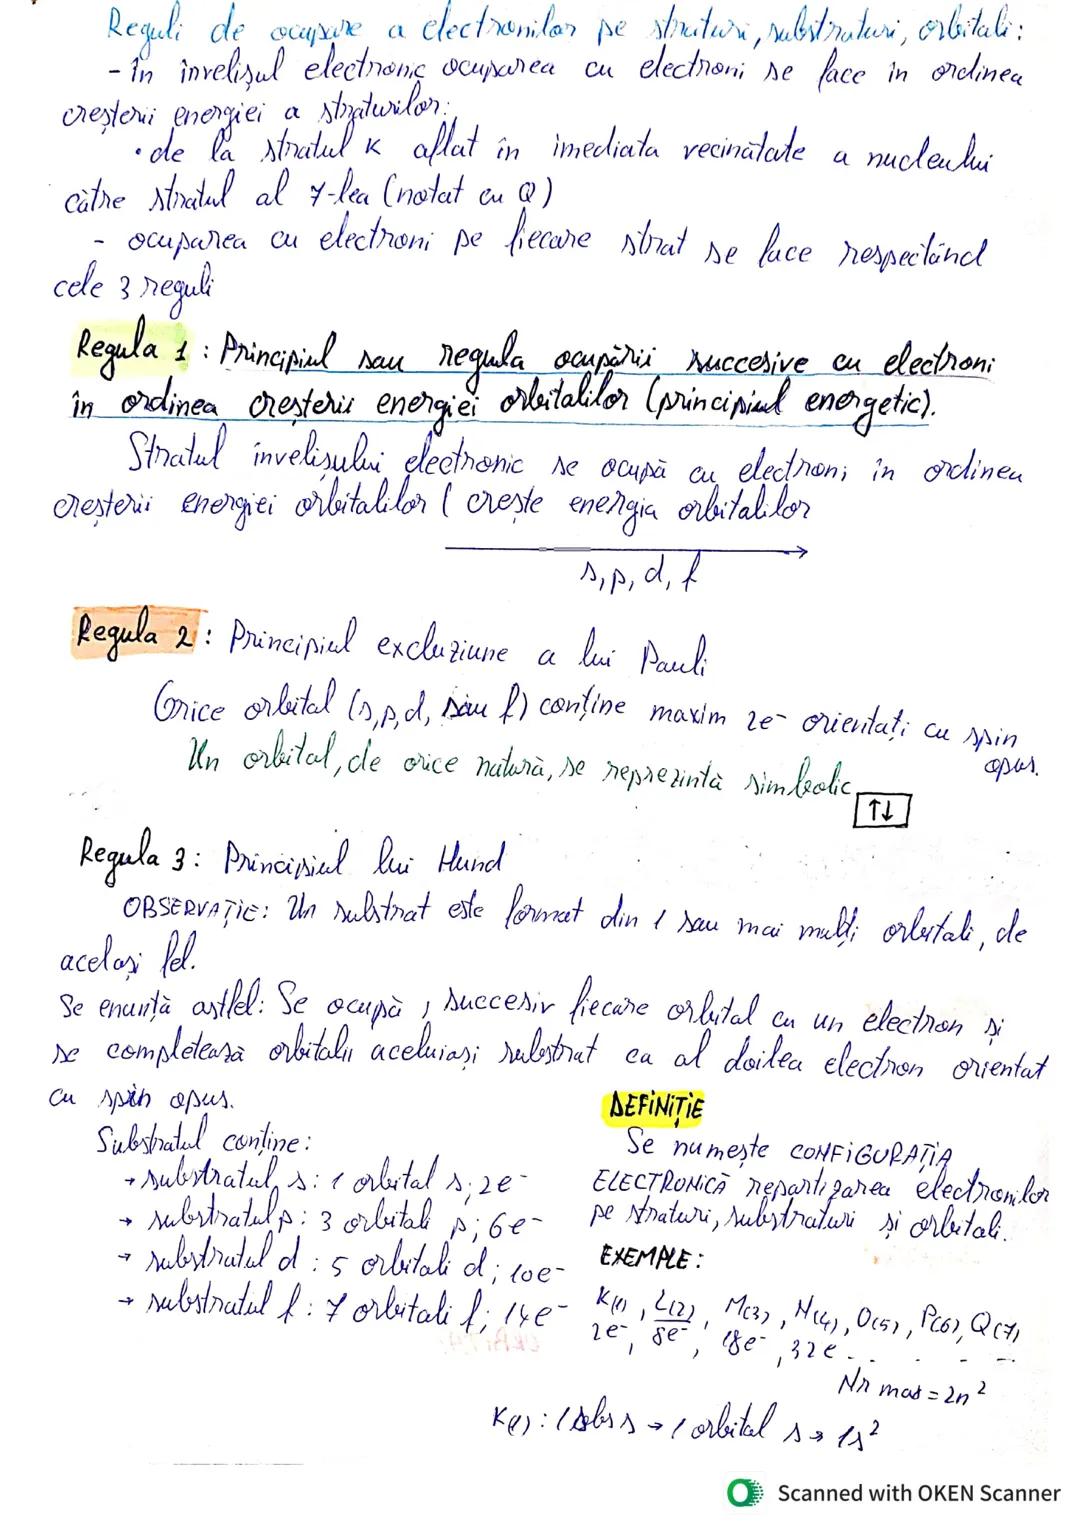 Reguli de ocupare a electronilor pe straturi, substraturi, orbitali:
- în învelișul electronic ocuparea cu electroni se face în ordinea
creșterii energiei a straturilor:
• de la stratul K aflat în imediata vecinătate a nucleului
către stratul al 7-lea (notat cu Q)
- ocuparea cu electroni pe fiecare strat se face respectând
cele 3 reguli
Regula 1 : Principiul sau regula ocupării succesive cu electroni
în ordinea creșterii energiei orbitalilor (principiul energetic).
Stratul învelișului electronic se ocupă cu electroni în ordinea
creșterii energiei orbitalilor ( crește energia orbitalilor
s, p, d, f
Regula 2 : Principiul excluziune a lui Pauli
Orice orbital (s, p, d, sau f) conține maxim 2e- orientați cu spin
opus.
Un orbital, de orice natură, se reprezintă simbolic
↑↓
Regula 3 : Principiul lui Hund
OBSERVAȚIE: Un substrat este format din 1 sau mai mulți orbitali, de
același fel.
Se enunță astfel: Se ocupă , succesiv fiecare orbital cu un electron și
se completează orbitalii aceluiași substrat cu al doilea electron orientat
cu spin opus.
Substratul conține:
→ substratul s: 1 orbital s; 2e-
→ substratul p: 3 orbitali p; 6e-
→ substratul d : 5 orbitali d; 10e-
→ substratul f : 7 orbitali f; 14e-
DEFINIȚIE
Se numește CONFIGURAȚIA
ELECTRONICĂ repartizarea electronilor
pe straturi, substraturi și orbitali.
EXEMPLE:
K(1), L(2), M(3), N(4), O(5), P(6), Q(7)
2e-, 8e-, 18e-, 32e- . . .
Nr max = 2n²
K(1) : 1 subs s → 1 orbital s → 1s²
Scanned with OKEN Scanner